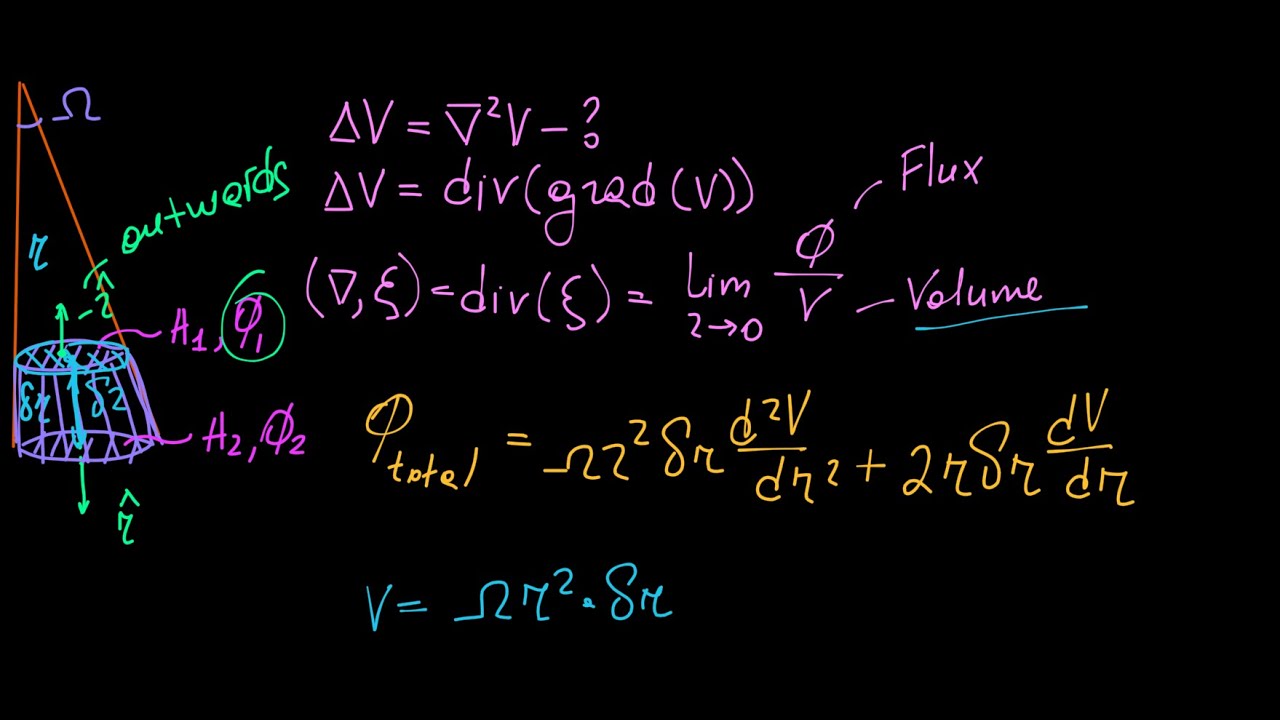 Ω
ΔV = ∇²V - ?
ΔV = div(grad(V))
outwards
Flux
r
(∇, ξ) = div(ξ) = Lim r→0 Φ/V
Volume
-r̂
A₁, Φ₁
δr δr
A₂, Φ₂
Φtotal = Ωr²δr d²V/dr² + 2rδr dV/dr
r̂
V = Ωr²·δr